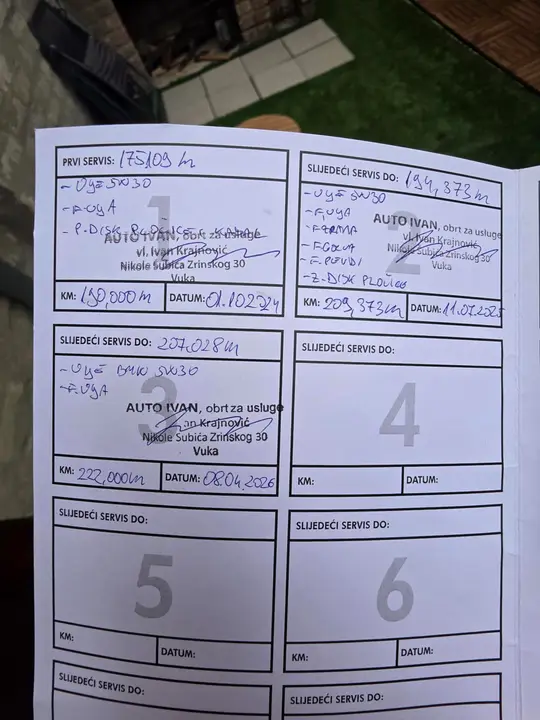 PRVI SERVIS: 175109 km
- ULJE 5W30
- F.ULJA
- P. DISK PLOČICE
1
AUTO IVAN, obrt za usluge
vl. Ivan Krajnović
Nikole Šubića Zrinskog 30
Vuka
KM: 190,000 km
DATUM: 01.10.2024
SLIJEDEĆI SERVIS DO: 194,373 km
- ULJE 5W30
- F.ULJA
- F.ZRAKA
- F.GORIVA
- F.
- Z.DISK PLOČICE
2
AUTO IVAN, obrt za usluge
vl. Ivan Krajnović
Nikole Šubića Zrinskog 30
Vuka
KM: 209,373 km
DATUM: 11.07.2025
SLIJEDEĆI SERVIS DO: 207.028 km
- ULJE BMW 5W30
- F.ULJA
3
AUTO IVAN, obrt za usluge
Ivan Krajnović
Nikole Šubića Zrinskog 30
Vuka
KM: 222,000 km
DATUM: 08.04.2026
SLIJEDEĆI SERVIS DO:
4
KM:
DATUM:
SLIJEDEĆI SERVIS DO:
5
KM:
DATUM:
SLIJEDEĆI SERVIS DO:
6
KM:
DATUM:
SLIJEDEĆI SERVIS DO:
SLIJEDEĆI SERVIS DO: